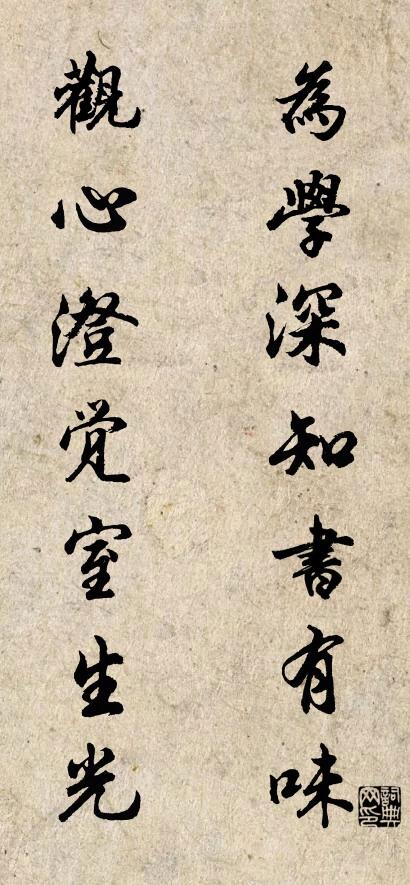 為學深知書有味
觀心澄覺室生光
詞典网印